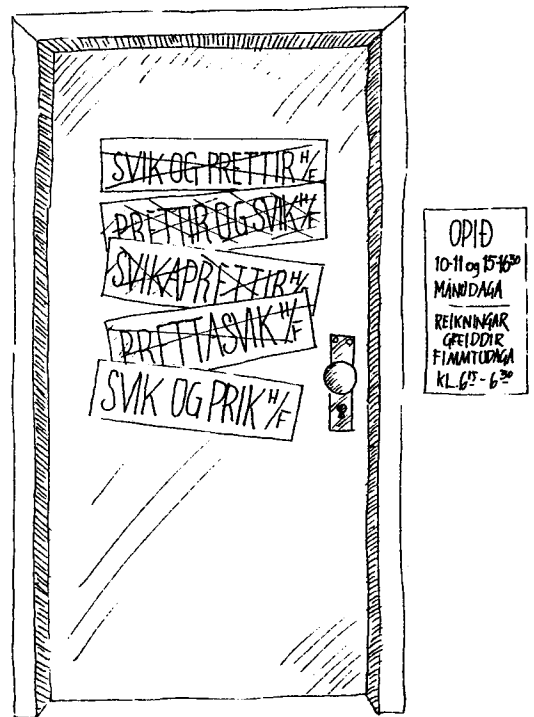 SVIK OG PRETTIR H/F
PRETTIR OG SVIK H/F
SVIKAPRETTIR H/F
PRETTASVIK H/F
SVIK OG PRIK H/F
OPIÐ
10-11 og 15-16³⁰
MÁNUDAGA
REIKNINGAR
GREIDDIR
FIMMTUDAGA
KL. 6¹⁵ - 6³⁰